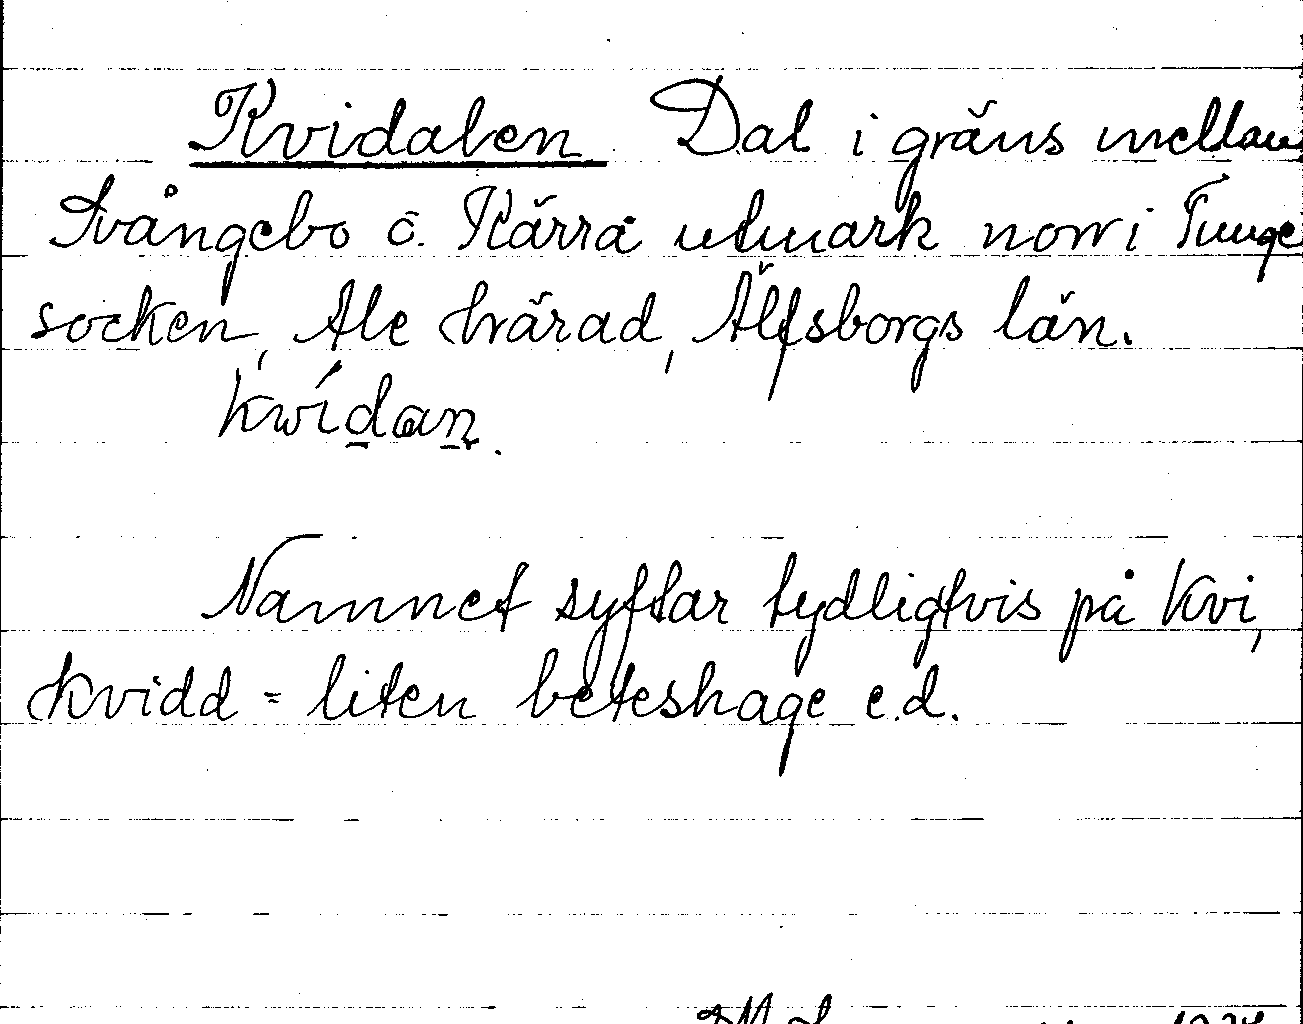 Kvidalen Dal i gräns mellan
Svångebo o. Kärra utmark norr i Tunge
socken, Ale härad, Älfsborgs län.
kwídan.
Namnet syftar tydligtvis på kvi,
kvidd = liten beteshage e.d.